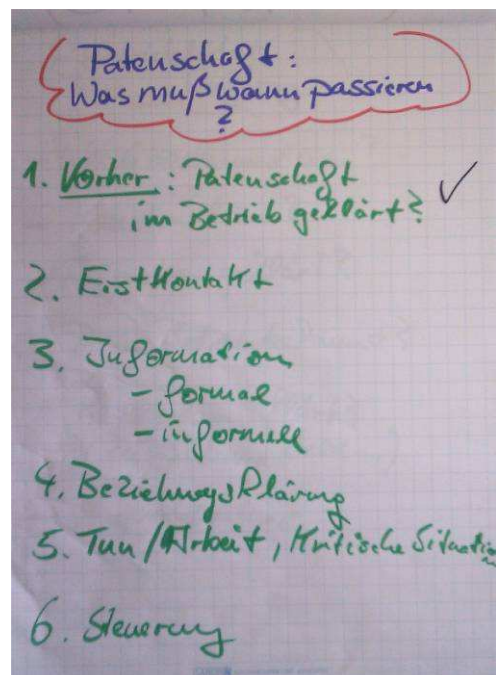 Patenschaft:
Was muß wann passieren
?
1. Vorher: Patenschaft
im Betrieb geklärt? ✓
2. Erstkontakt
3. Information
- formal
- informell
4. Beziehungsklärung
5. Tun/Arbeit, Kritische Situation
6. Steuerung